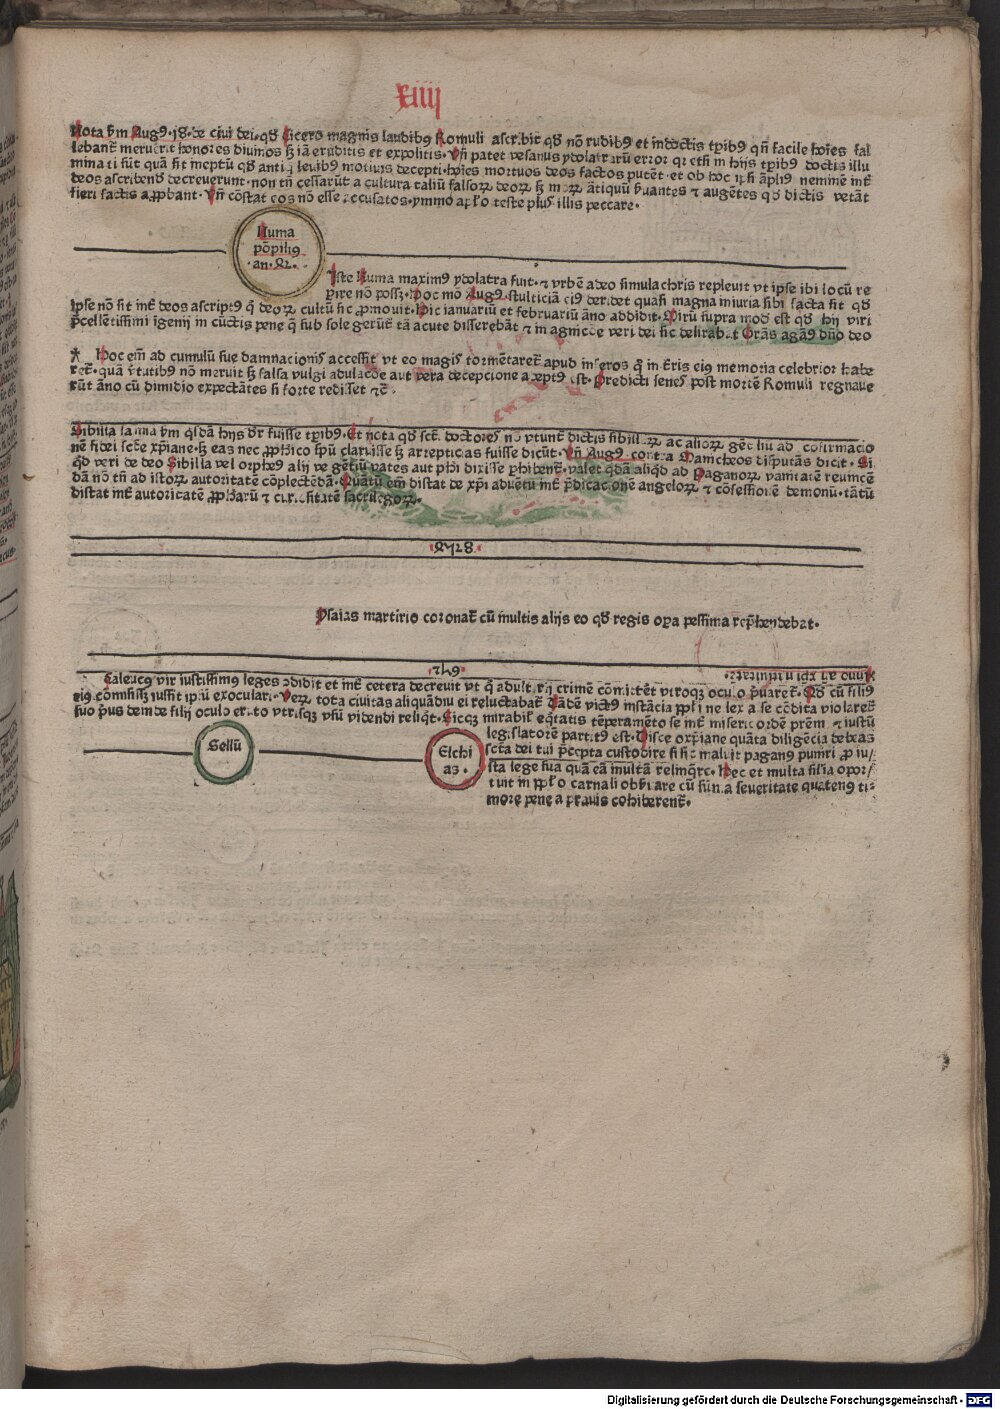 xiiij
Nota ẜm Augꝰ·18·de ciui dei·qđ Cicero magnis laudibꝰ Romuli ascribit qđ nō rudibꝰ et indoctis tp̄ibꝰ qn̄ facile hoīes fal
lebant᷑ meruerit honores diuinos sꝫ iā eruditis et expolitis·Vn̄ patet vesanus ydolatrarū error qꝛ etsi in hijs tp̄ibꝰ doctis illu
deos ascribendo decreuerunt·non tn̄ cessarūt a cultura taliū falsoꝝ deoꝝ sꝫ moꝝ ātiquū ẜuantes et augētes qđ dictis vetāt
fieri factis aꝓbant·Vn̄ cōstat eos nō esse accusatos·ymmo apl'o teste plus illis peccare·
Numa
pōpiliꝰ
·an·
Iste Numa maximꝰ ydolatra fuit·⁊ vrbē adeo simulachris repleuit vt ipse ibi locū re
perire nō possꝫ·Hoc mō Augꝰ·stulticiā eiꝰ deridet quasi magna iniuria sibi facta sit qđ
ipse nō sit int᷑ deos ascriptꝰ q̄ deoꝝ cultū sic ꝓmouit·Hic ianuariū et februariū āno addidit·Mirū supra modū est qđ hij viri
p̄cellētissimi īgenij in cūctis pene q̄ sub sole gerūt᷑ tā acute disserebāt ⁊ in agnicōe veri dei sic delirabāt Grās agaꝰ dn̄o deo
Hoc em̄ ad cumulū sue damnacionis accessit vt eo magis tormētaret᷑ apud inferos q̄ in t᷑ris eiꝰ memoria celebrior habe
ret᷑·quā v᷑tutibꝰ nō meruit sꝫ falsa vulgi adulacōe aut vera decepcione adeptꝰ est·Predicti senes post mortē Romuli regnaue
rūt āno cū dimidio expectātes si forte redisset ⁊c̄
Sibilla samia ẜm qͦsdā hijs dr̄ fuisse tp̄ibꝰ·Et nota qđ scī doctores nō vtunt᷑ dictis sibillaꝝ ac alioꝝ gētiliū ad cōfirmacio
nē fidei scē xp̄iane·sꝫ eas nec ꝓphico spū claruisse sꝫ arrepticias fuisse dicūt·Vn̄ Augꝰ contra Manicheos disputās dicit·Si
qđ veri de deo Sibilla vel orpheꝰ alij ve gētiū vates aut ph̄i dixisse ꝑhibent᷑·valet qͥdā aliqͥd ad Paganoꝝ vanitatē reuincē
dā nō tn̄ ad istoꝝ autoritatē cōplectēdā·Quātū em̄ distat de xp̄i aduētu int᷑ p̄dicacionē angeloꝝ ⁊ cōfessionē demonū·tātū
distat int᷑ autoritatē ꝓphaꝝ ⁊ curiositatē sacrilegoꝝ·
·4528·
Ysaias martirio coronat᷑ cū multis alijs eo qđ regis oꝑa pessima rep̄hendebat·
·749·
Anno an̄ xp̄i natiuitatē·
Saleucꝰ vir iustissimꝰ leges ꝯdidit et int᷑ cetera decreuit vt q̄ adulterij crimē cōmitt᷑et vtroqꝫ oculo p̄uaret᷑·Qđ cū filiꝰ
eiꝰ commisissꝫ iussit ipm̄ exoculari·Veꝝ tota ciuitas aliquādiu ei reluctabat᷑ Tādē victꝰ instācia ppl'i ne lex a se cōdita violaret᷑
suo p̄us deinde filij oculo eruto vtrisqꝫ vsū videndi reliqͥt·Sicqꝫ mirabili eqͥtatis tēperamēto se int᷑ misericordē prēm ⁊ iustū
legislatorē partitꝰ est·Disce o xp̄iane quāta diligēcia debeas
scā dei tui p̄cepta custodire si sic maluit paganꝰ puniri ꝓ iu/
sta lege sua quā eā inultā relinqͥre·Hec et multa silia opor/
tuit in ppl'o carnali obẜuare cū summa seueritate quatenꝰ ti⸗
more pene a prauis cohiberent᷑·
Sellū
Elchi
as·
Digitalisierung gefördert durch die Deutsche Forschungsgemeinschaft - DFG